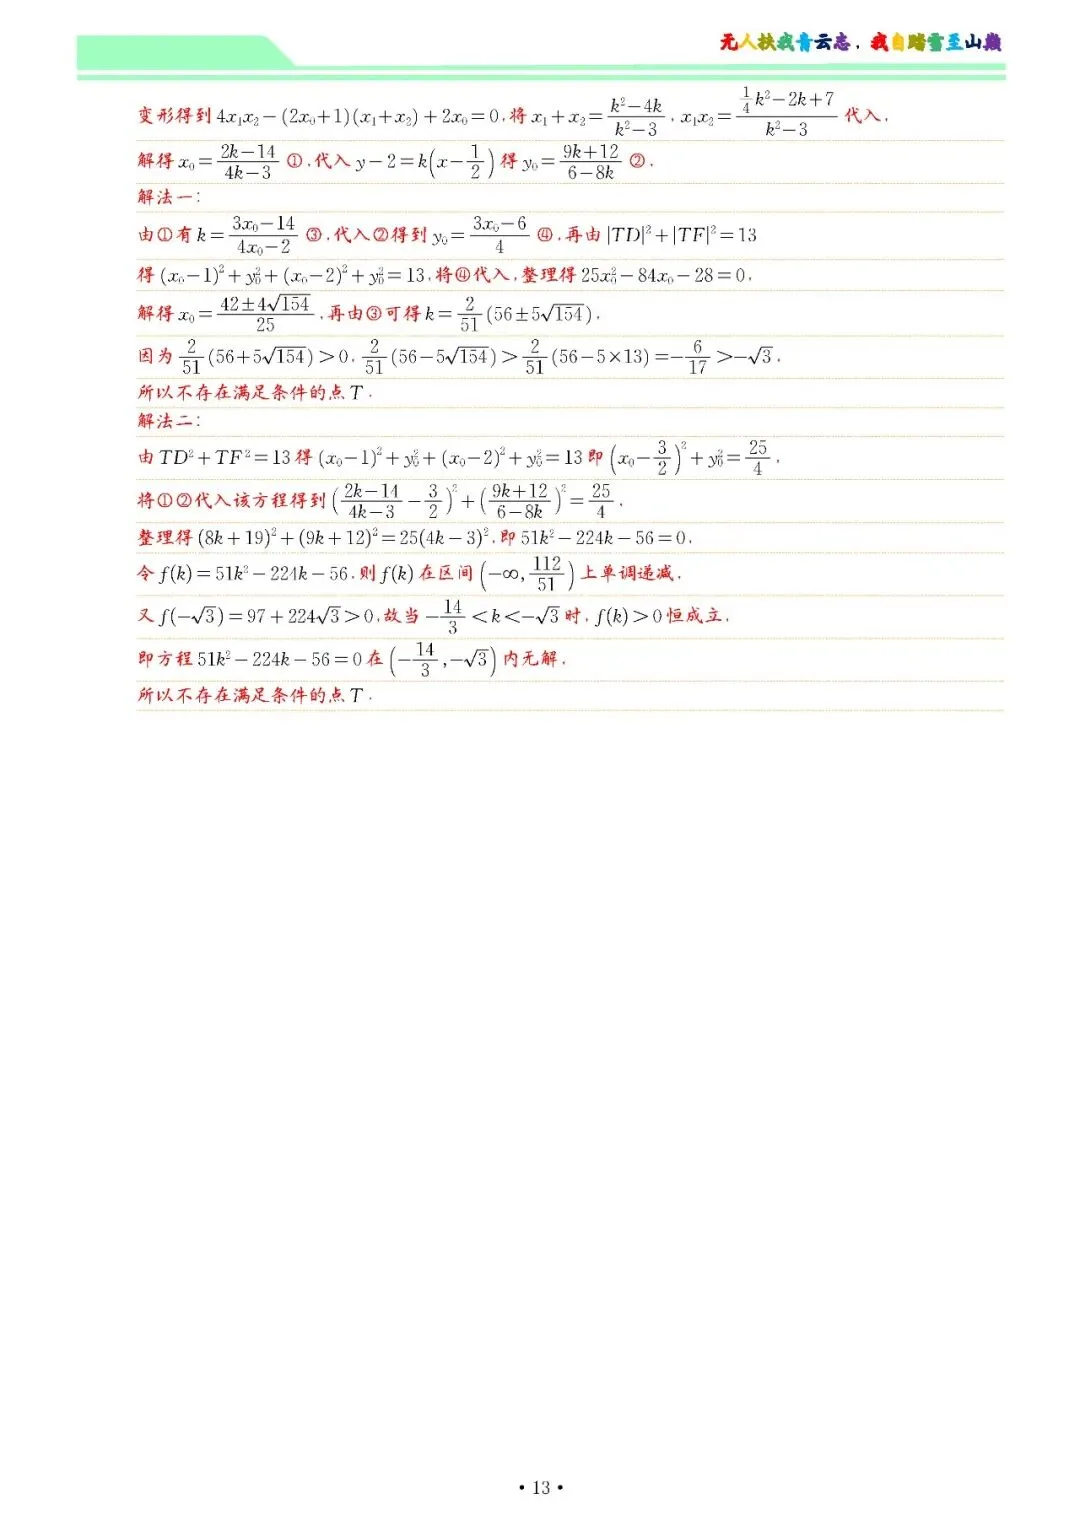 无人扶我青云志，我自踏雪至山巅
变形得到 4x₁x₂-(2x₀+1)(x₁+x₂)+2x₀=0,将 x₁+x₂=\frac{k²-4k}{k²-3}, x₁x₂=\frac{\frac{1}{4}k²-2k+7}{k²-3} 代入,
解得 x₀=\frac{2k-14}{4k-3} ①,代入 y-2=k(x-\frac{1}{2}) 得 y₀=\frac{9k+12}{6-8k} ②.
解法一:
由①有 k=\frac{3x₀-14}{4x₀-2} ③,代入②得到 y₀=\frac{3x₀-6}{4} ④,再由 |TD|²+|TF|²=13
得 (x₀-1)²+y₀²+(x₀-2)²+y₀²=13,将④代入,整理得 25x₀²-84x₀-28=0,
解得 x₀=\frac{42±4√154}{25},再由③可得 k=\frac{2}{51}(56±5√154).
因为 \frac{2}{51}(56+5√154)>0, \frac{2}{51}(56-5√154)>\frac{2}{51}(56-5×13)=-\frac{6}{17}>-√3,
所以不存在满足条件的点 T.
解法二:
由 TD²+TF²=13 得 (x₀-1)²+y₀²+(x₀-2)²+y₀²=13 即 (x₀-\frac{3}{2})²+y₀²=\frac{25}{4},
将①②代入该方程得到 (\frac{2k-14}{4k-3}-\frac{3}{2})²+(\frac{9k+12}{6-8k})²=\frac{25}{4}.
整理得 (8k+19)²+(9k+12)²=25(4k-3)²,即 51k²-224k-56=0,
令 f(k)=51k²-224k-56,则 f(k) 在区间 (-∞,\frac{112}{51}) 上单调递减,
又 f(-√3)=97+224√3>0,故当 -\frac{14}{3}<k<-√3 时, f(k)>0 恒成立,
即方程 51k²-224k-56=0 在 (-\frac{14}{3},-√3) 内无解,
所以不存在满足条件的点 T.
·13·